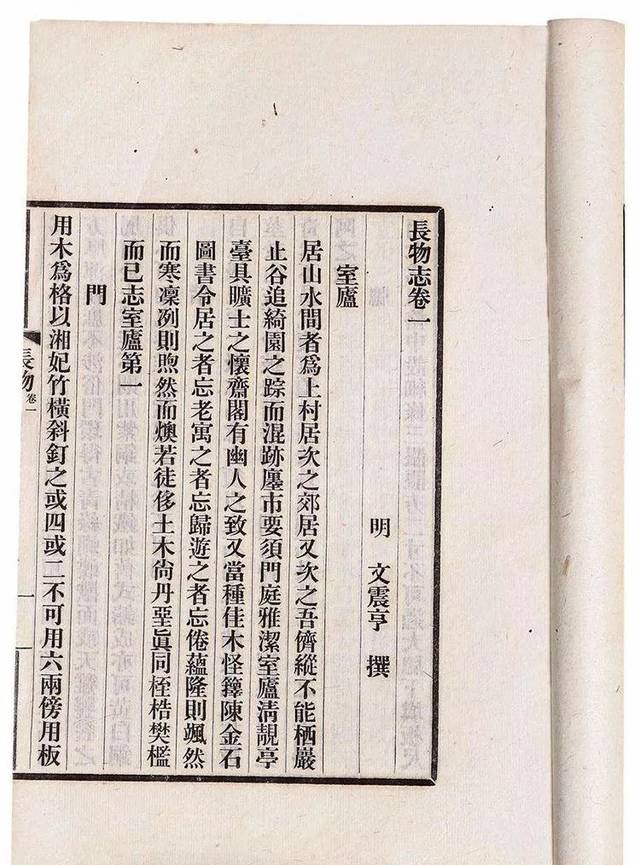 長物志卷一
明　文震亨　撰
室廬
居山水間者爲上村居次之郊居又次之吾儕縱不能栖巖
止谷追綺園之踪而混跡廛市要須門庭雅潔室廬淸靚亭
臺具曠士之懷齋閣有幽人之致又當種佳木怪籜陳金石
圖書令居之者忘老寓之者忘歸遊之者忘倦蘊隆則颯然
而寒凜冽則煦然而燠若徒侈土木尙丹堊眞同桎梏樊檻
而已志室廬第一
門
用木爲格以湘妃竹橫斜釘之或四或二不可用六兩傍用板
長物 卷一
一